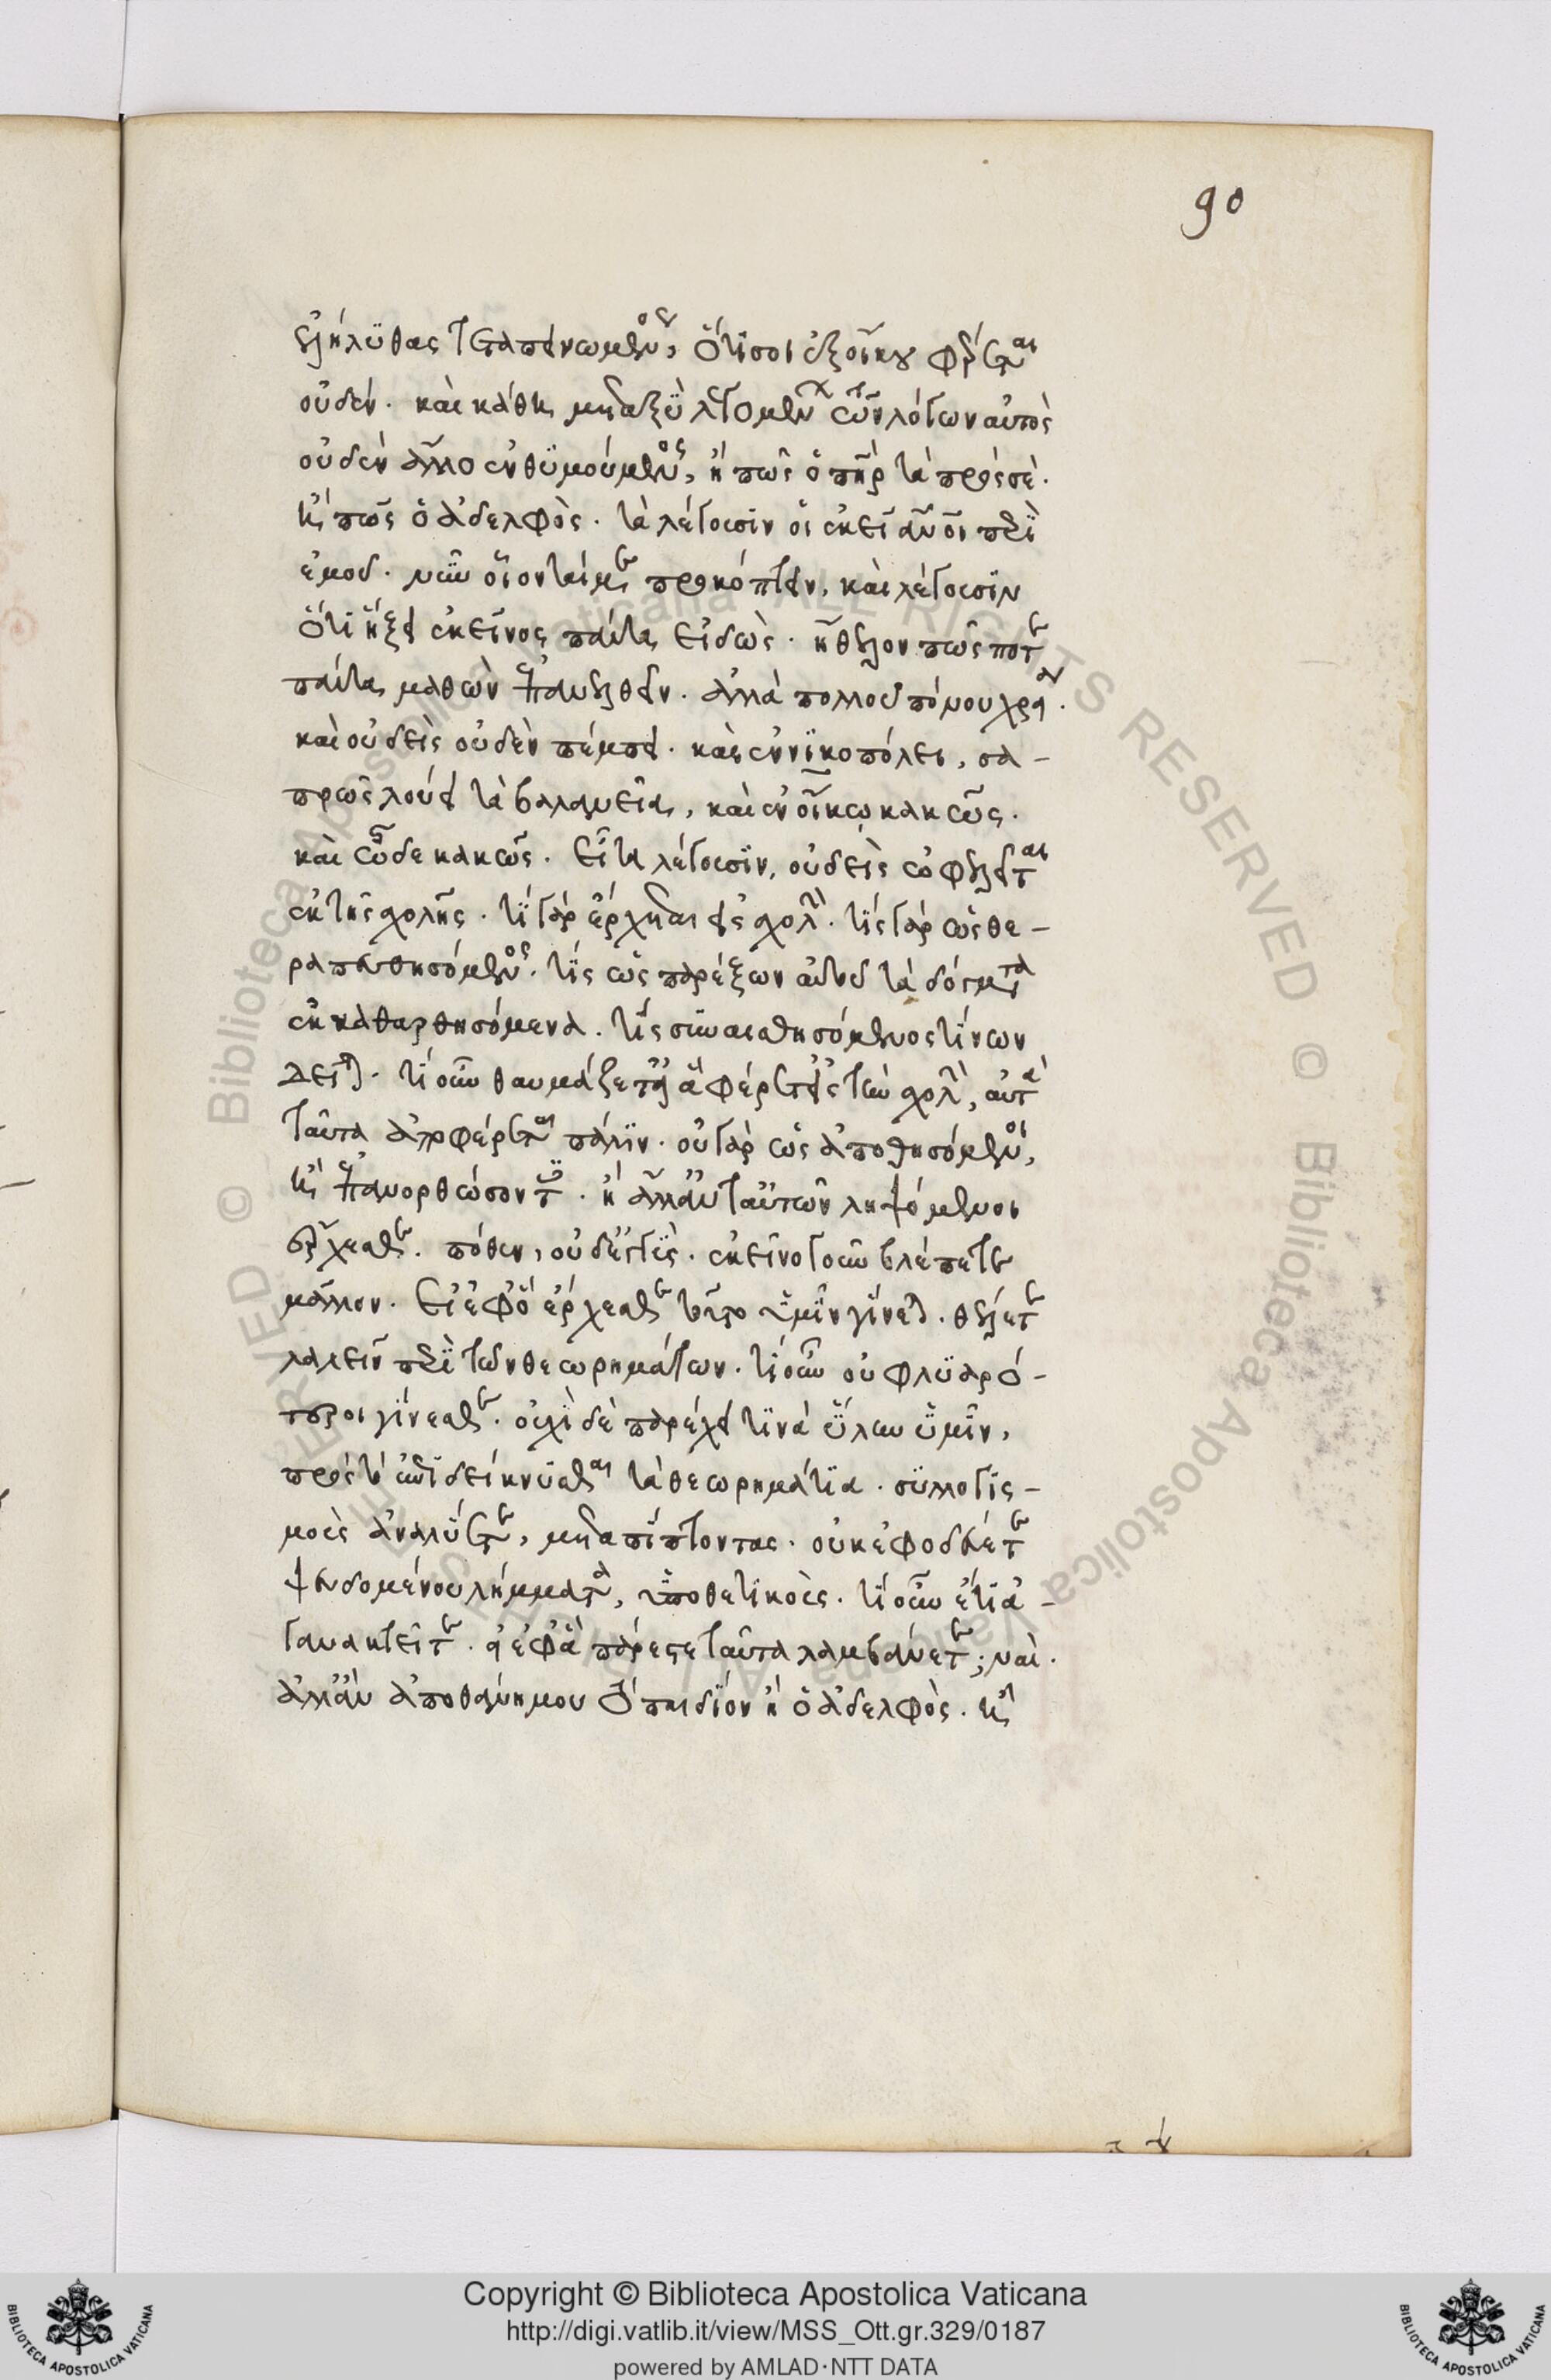 ἐλήλυθας τεταπεινωμένος, ὅτι σοι ἐξ οἴκου φέρεται
οὐδέν. καὶ κάθη μεταξὺ λεγομένων τῶν λόγων αὐτὸς
οὐδὲν ἄλλο ἐνθυμούμενος, ἢ πῶς ὁ πηρ τὰ πρός σέ.
ἢ πῶς ὁ ἀδελφός. τὰ λέγουσιν οἱ ἐκεῖ ἄνοι περὶ
ἐμοῦ. νῦν οἴονταί με προκόπτειν, καὶ λέγουσιν
ὅτι ἥξει ἐκεῖνος πάντα εἰδώς. ἤθελον πῶς ποτε
πάντα μαθὼν ἐπανελθεῖν. ἀλλὰ πολλοῦ πόνου χρεία.
καὶ οὐδεὶς οὐδὲν πέμπει. καὶ ἐν νικοπόλει, σα-
πρῶς λούει τὰ βαλανεῖα, καὶ ἐν οἴκῳ κακῶς.
καὶ ὧδε κακῶς. εἶτα λέγουσιν, οὐδεὶς ὠφελεῖται
ἐκ τῆς σχολῆς. τί γὰρ ἔρχεται εἰς σχολήν. τίς γὰρ ὡς θε-
ραπευθησόμενος. τίς ὡς παρέξων αὐτοῦ τὰ δόγματα
ἐκκαθαρθησόμενα. τίς συναισθησόμενος τίνων
δεῖται. τί οὖν θαυμάζετ' εἰ ἃ φέρετ' εἰς τὴν σχολήν, αὐτὰ
ταῦτα ἀποφέρεται πάλιν. οὐ γὰρ ὡς ἀποθησόμενοι,
ἢ ἐπανορθώσοντες. ἢ ἄλλ' ἀντ' αὐτῶν ληψόμενοι
ἔρχεσθε. πόθεν, οὐδ' ἐγγύς. ἐκεῖνο γοῦν βλέπετε
μᾶλλον. εἰ ἐφ' ὃ ἔρχεσθε τοῦτο ὑμῖν γίνεται. θέλετε
λαλεῖν περὶ τῶν θεωρημάτων. τί οὖν οὐ φλυαρό-
τεροι γίνεσθε. οὐχὶ δὲ παρέχει τινὰ ὕλην ὑμῖν,
πρὸς τὸ ἐπιδείκνυσθαι τὰ θεωρημάτια. συλλογισ-
μοὺς ἀναλύετε, μεταπίπτοντας. οὐκ ἐφοδεύετε
ψευδομένου λήμματα, ὑποθετικούς. τί οὖν ἔτι ἀ-
γανακτεῖτε. εἰ ἐφ' ἃ πάρεστε ταῦτα λαμβάνετε; ναί.
ἀλλ' ἂν ἀποθάνη μου τὸ παιδίον ἢ ὁ ἀδελφός. ἢ
90
Copyright © Biblioteca Apostolica Vaticana
http://digi.vatlib.it/view/MSS_Ott.gr.329/0187
powered by AMLAD·NTT DATA